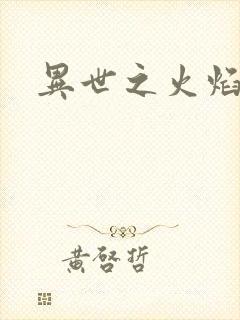 異世之火焰
黄啓哲